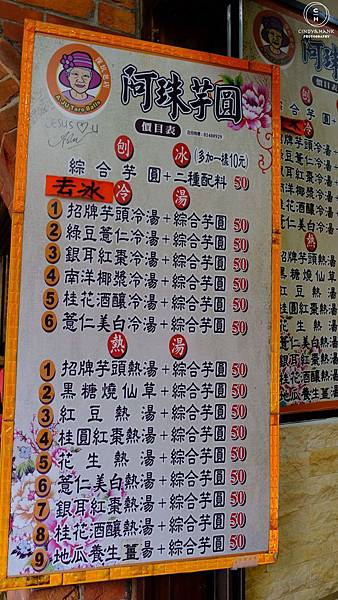 CINDY&HANK
PHOTOGRAPHY
A-JU Taro Balls
JESUS
阿珠芋圓
價目表
刨冰(多加一樣10元)
綜合芋圓+二種配料 50
去冰冷湯
1 招牌芋頭冷湯+綜合芋圓 50
2 綠豆薏仁冷湯+綜合芋圓 50
3 銀耳紅棗冷湯+綜合芋圓 50
4 南洋椰漿冷湯+綜合芋圓 50
5 桂花酒釀冷湯+綜合芋圓 50
6 薏仁美白冷湯+綜合芋圓 50
熱湯
1 招牌芋頭熱湯+綜合芋圓 50
2 黑糖燒仙草+綜合芋圓 50
3 紅豆熱湯+綜合芋圓 50
4 桂圓紅棗熱湯+綜合芋圓 50
5 花生熱湯+綜合芋圓 50
6 薏仁美白熱湯+綜合芋圓 50
7 銀耳紅棗熱湯+綜合芋圓 50
8 桂花酒釀熱湯+綜合芋圓 50
9 地瓜養生薑湯+綜合芋圓 50
阿珠
綜合芋
招牌芋頭冷湯
綠豆薏仁冷湯
銀耳紅棗冷湯
南洋椰漿冷湯
桂花酒釀冷湯
薏仁美白冷湯
熱
招牌芋頭熱湯
黑糖燒仙草
紅豆熱湯
桂圓紅棗熱湯
花生熱湯
薏仁美白熱湯
銀耳紅棗熱湯
桂花酒釀熱湯
地瓜養生薑湯